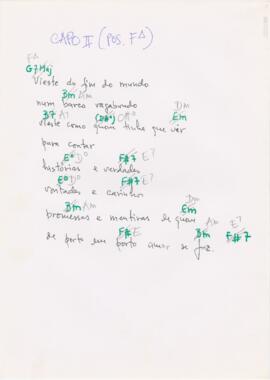 CAPO II (POS. F∆)
F∆
G7Maj
Vieste do fim do mundo
Bm Am
num barco vagabundo Dm
B7 A7 (D#°) C#° Em
Vieste como quem tinha que vir
para contar
E° D° F#7 E7
histórias e verdades
E° D° F#7 E7
vontades e carinho Dm
Bm Am Em
promessas e mentiras de quem Am E7
de porto em porto amor se fez.
F# E Bm F#7